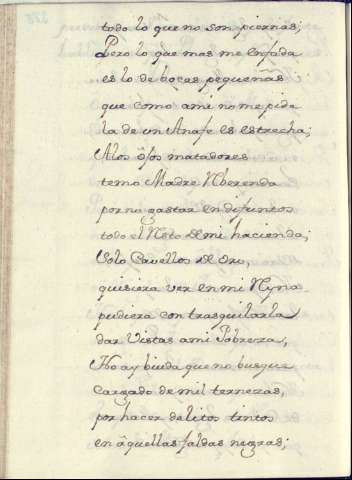 todo lo que no son piernas;
Pero lo que mas me enfada
es lo de bocas pequeñas
que como a mi no me pida
la de un Anafe es estrecha;
A los ôjos matadores
temo Madre Rberenda
por no gastar en difuntos
todo el Resto de mi hacienda;
Solo Cavellos de Oro,
quisiera ver en mi Nyna
pudiera con trasquilarla
dar Vistas a mi Pobreza,
No ay biuda que no busque
Cargado de mil ternezas,
por hacer delitos tintos
en âquellas faldas negras;